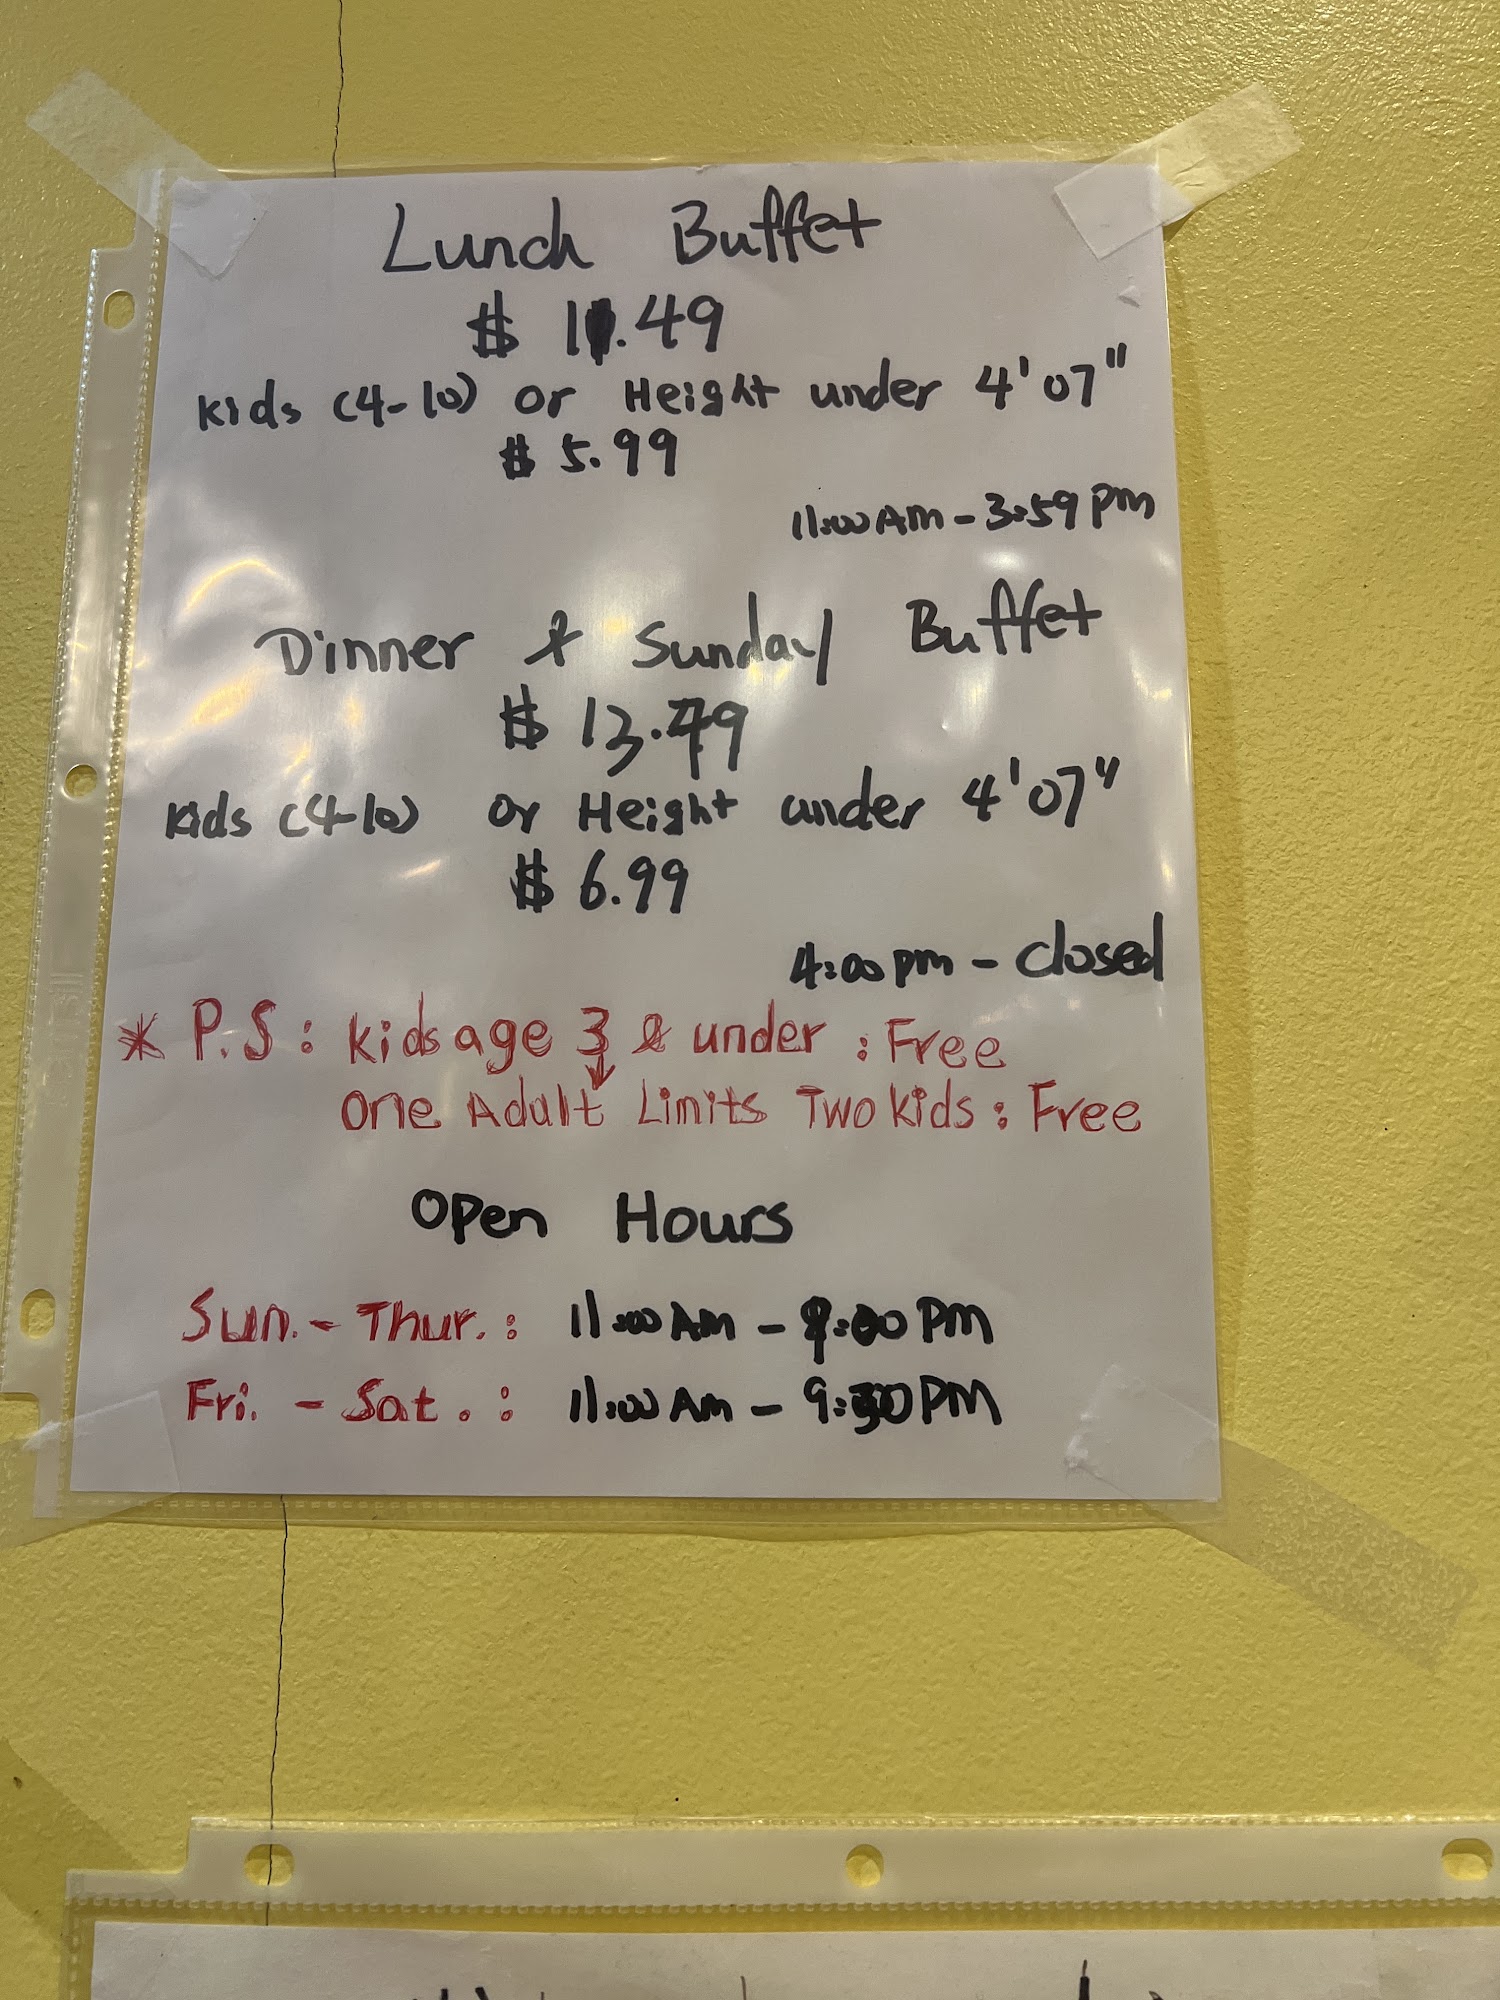 Lunch Buffet
$ 11.49
Kids (4-10) or Height under 4'07"
$ 5.99
11:00 AM - 3:59 PM
Dinner & Sunday Buffet
$ 13.49
Kids (4-10) or Height under 4'07"
$ 6.99
4:00 pm - Closed
* P.S: Kids age 3 & under : Free
One Adult Limits Two Kids : Free
Open Hours
Sun. - Thur. : 11:00 AM - 9:00 PM
Fri. - Sat. : 11:00 AM - 9:30 PM